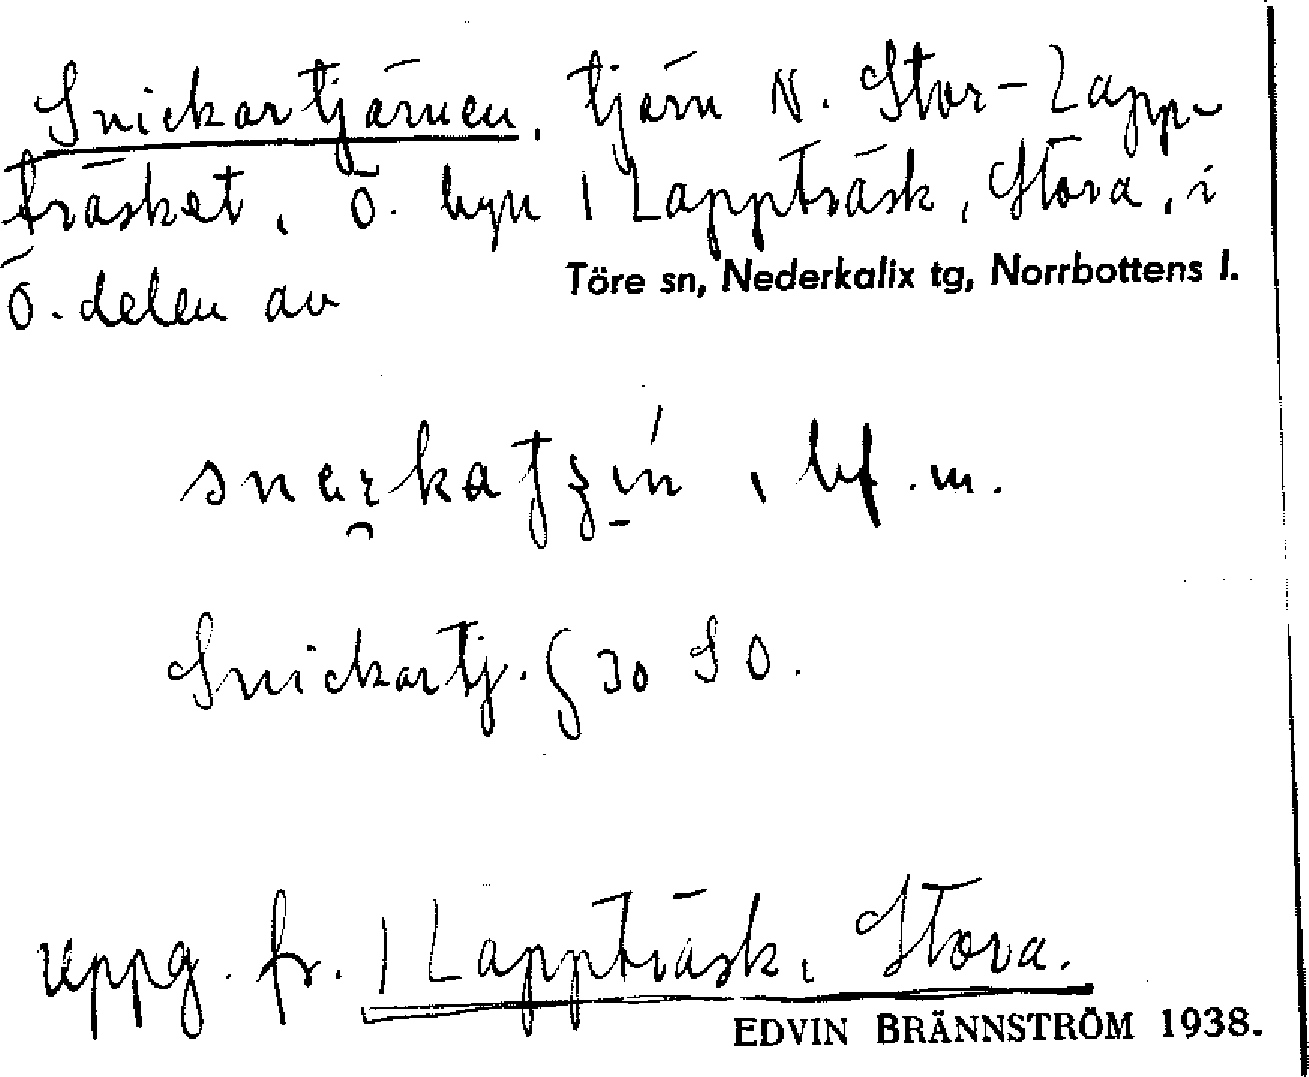 Snickartjärnen, tjärn N. Stor-Lapp-
träsket, Ö. byn 1 Lappträsk, Stora, i
Ö. delen av Töre sn, Nederkalix tg, Norrbottens l.
bf. m.
Snickartj. § 30 SO.
uppg. fr. 1 Lappträsk, Stora.
EDVIN BRÄNNSTRÖM 1938.